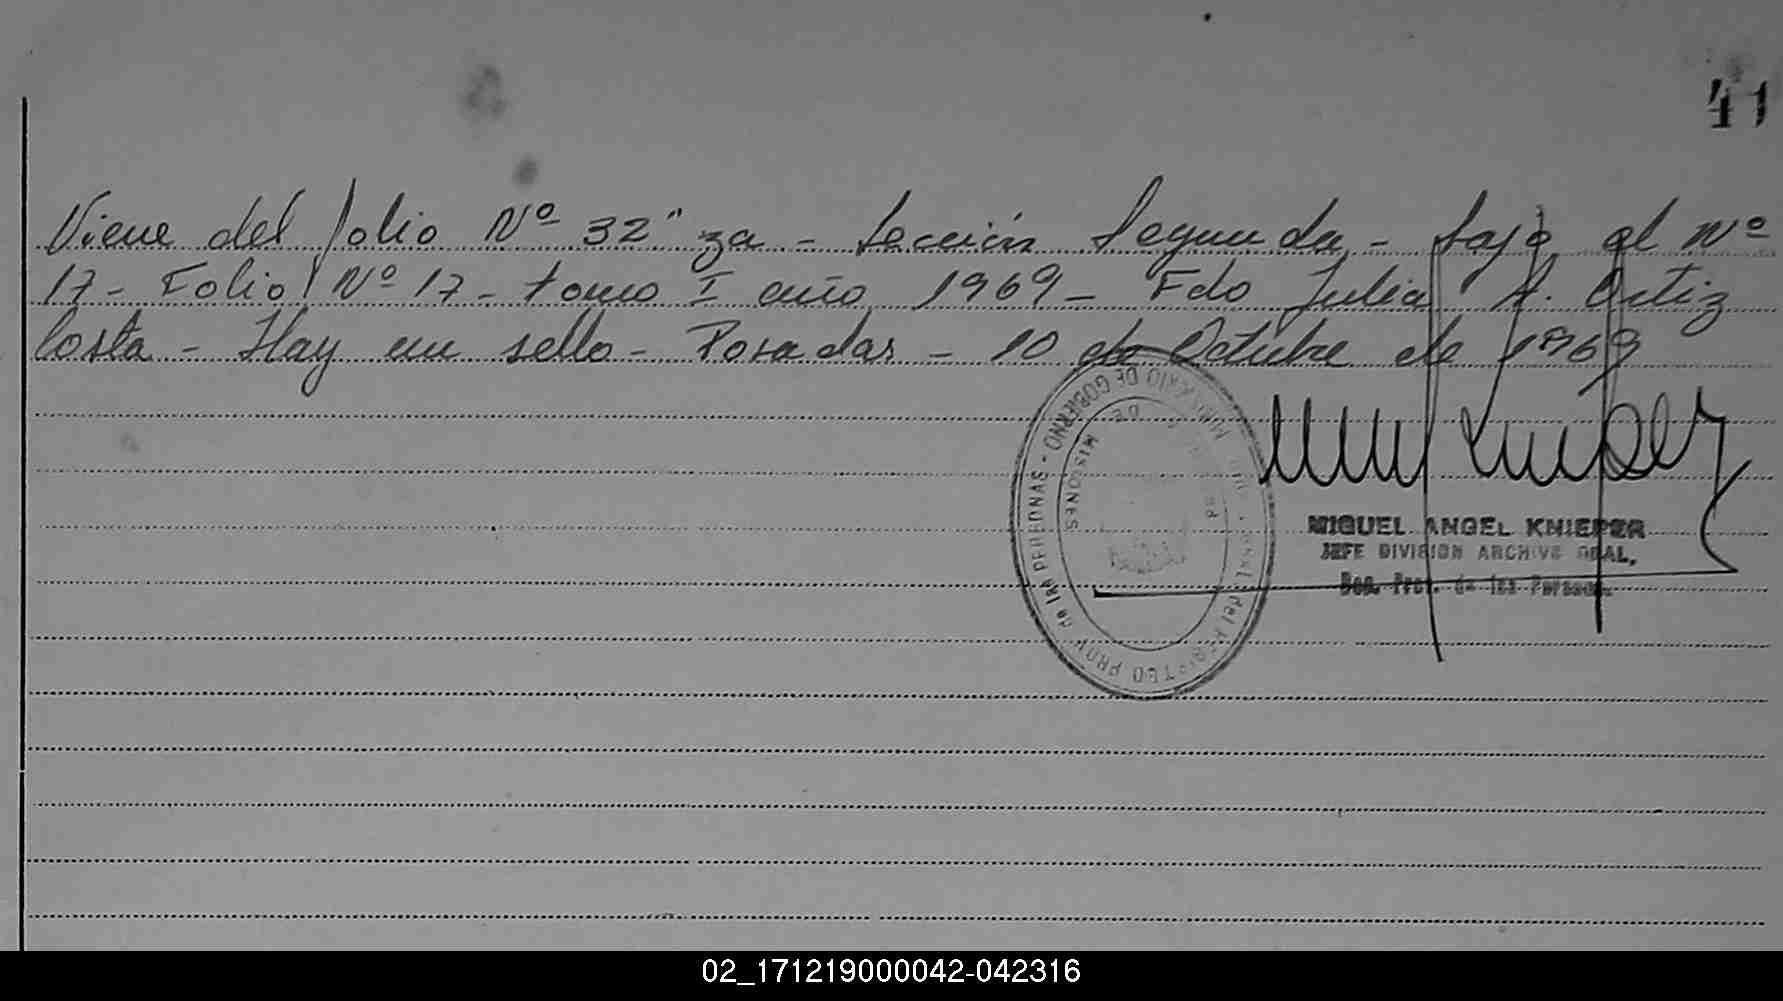 41
Viene del folio Nº 32" za - Sección Segunda - bajo el Nº
17 - Folio Nº 17 - tomo I año 1969 - Fdo Julia A. Ortiz
Costa - Hay un sello - Posadas - 10 de Octubre de 1969
MINISTERIO DE GOBIERNO
PROV de las PERSONAS
MISIONES
MIGUEL ANGEL KNIEPER
JEFE DIVISION ARCHIVO GRAL,
de las Personas
02_171219000042-042316